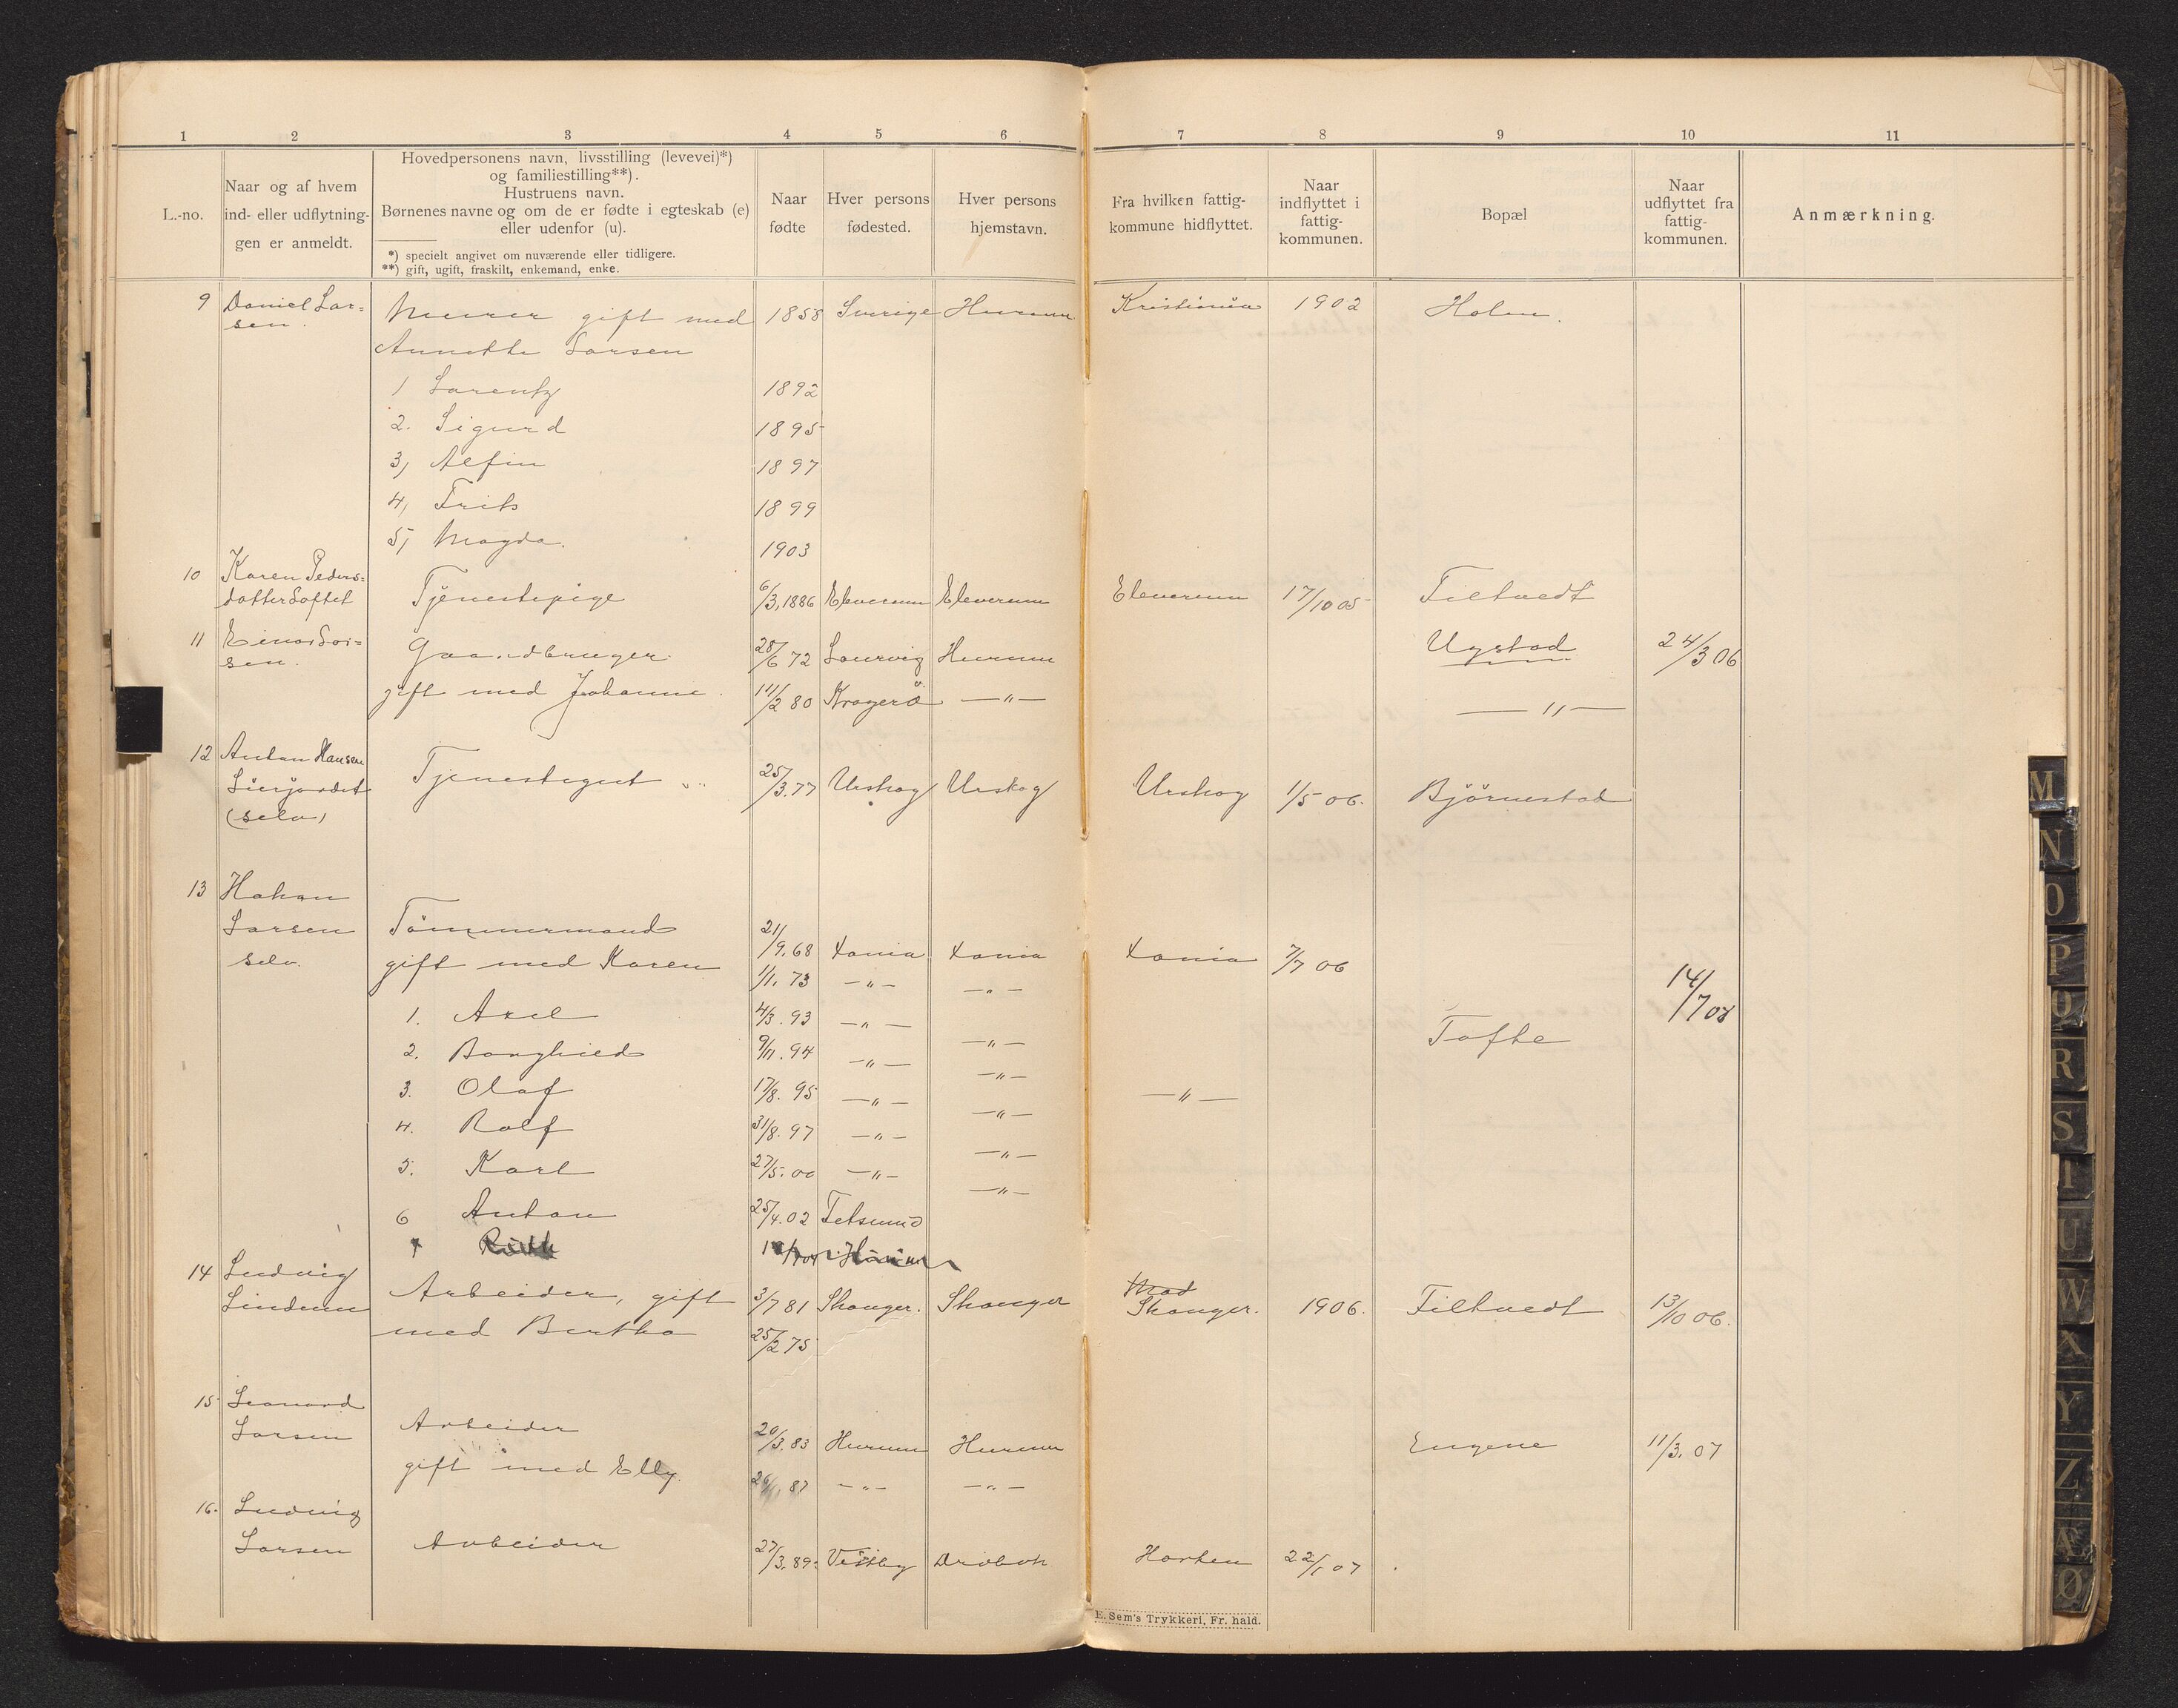 1 2 3 4 5 6 7 8 9 10 11
L.-no.
Naar og af hvem
ind- eller udflytnin-
gen er anmeldt.
Hovedpersonens navn, livsstilling (levevei)*)
og familiestilling**).
Hustruens navn.
Børnenes navne og om de er fødte i egteskab (e)
eller udenfor (u).
*) specielt angivet om nuværende eller tidligere.
**) gift, ugift, fraskilt, enkemand, enke.
Naar
fødte
Hver persons
fødested.
Hver persons
hjemstavn.
Fra hvilken fattig-
kommune hidflyttet.
Naar
indflyttet i
fattig-
kommunen.
Bopæl
Naar
udflyttet fra
fattig-
kommunen.
Anmærkning.
9 Daniel Lar= Murer gift med 1858 Sverige Hurum Kristiania 1902 Holen.
sen.
Annette Larsen
1 Larentz 1892
2. Sigurd 1895
3, Alfin 1897
4, Frits 1899
5, Magda. 1903
10 Karen Peders=
datter Loftet Tjenestepige 6/3, 1886 Elverum Elverum Elverum 17/10 05 Filtvedt
11 Einar Lar= Gaardbruger 28/6 72 Laurvig Hurum Ugstad 24/3 06
sen.
gift med Johanne. 11/2 80 Kragerö —„— —„—
12 Anton Hansen
Lierjordet Tjenestegut 25/3.77 Urskog Urskog Urskog 1/5 06. Björnestad
(selv)
13 Hakon
Larsen Tömmermand 21/9.68 Xania Xania Xania 7/7 06
selv. gift med Karen 1/1. 73 —„— —„—
14/7 08
1. Axel 4/3. 93 —„— —„— Tofte
2. Borghild 9/11. 94 —„— —„—
3. Olaf 17/8. 95 —„— —„— —„—
4. Rolf 31/8. 97 —„— —„—
5. Karl 27/5. 00 —„— —„—
6 Anton 25/4.02 Fetsund
7 Ruth
14 Ludvig Arbeider, gift 3/7 81 Skauger. Skauger Skauger. 1906. Filtvedt 13/10 06.
Lindum
med Bertha 25/2 75
15 Leonard
Larsen Arbeider 20/3. 83 Hurum Hurum Eugene 11/3. 07
gift med Elly. 87 —„— —„—
16. Ludvig
Larsen Arbeider 27/3. 89. Vestby Dröbak Horten 22/1 07
E. Sem's Trykkeri, Fr. hald.
M
N
O
P
Q
R
S
T
U
W
X
Y
Z
Æ
Ø